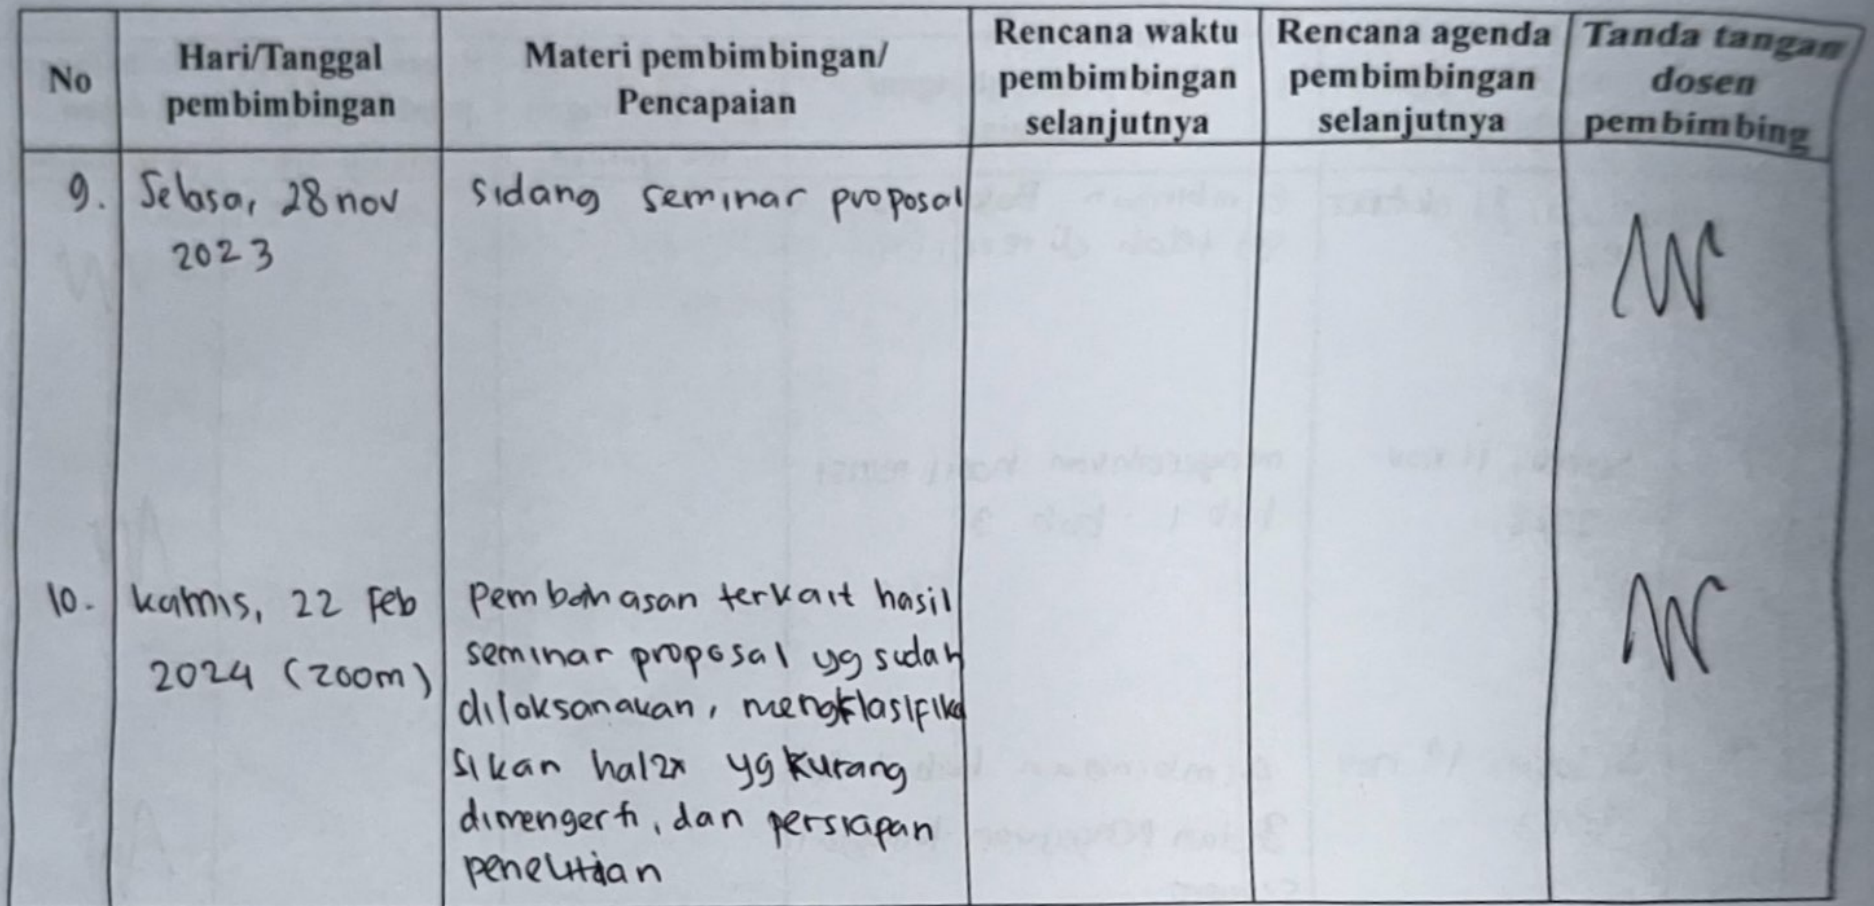 No
Hari/Tanggal
pembimbingan
Materi pembimbingan/
Pencapaian
Rencana waktu
pembimbingan
selanjutnya
Rencana agenda
pembimbingan
selanjutnya
Tanda tangan
dosen
pembimbing
9.
Selasa, 28 nov
2023
sidang seminar proposal
10.
kamis, 22 Feb
2024 (zoom)
Pembahasan terkait hasil
seminar proposal yg sudah
dilaksanakan, mengklasifika
sikan hal2x yg kurang
dimengerti, dan persiapan
penelitian